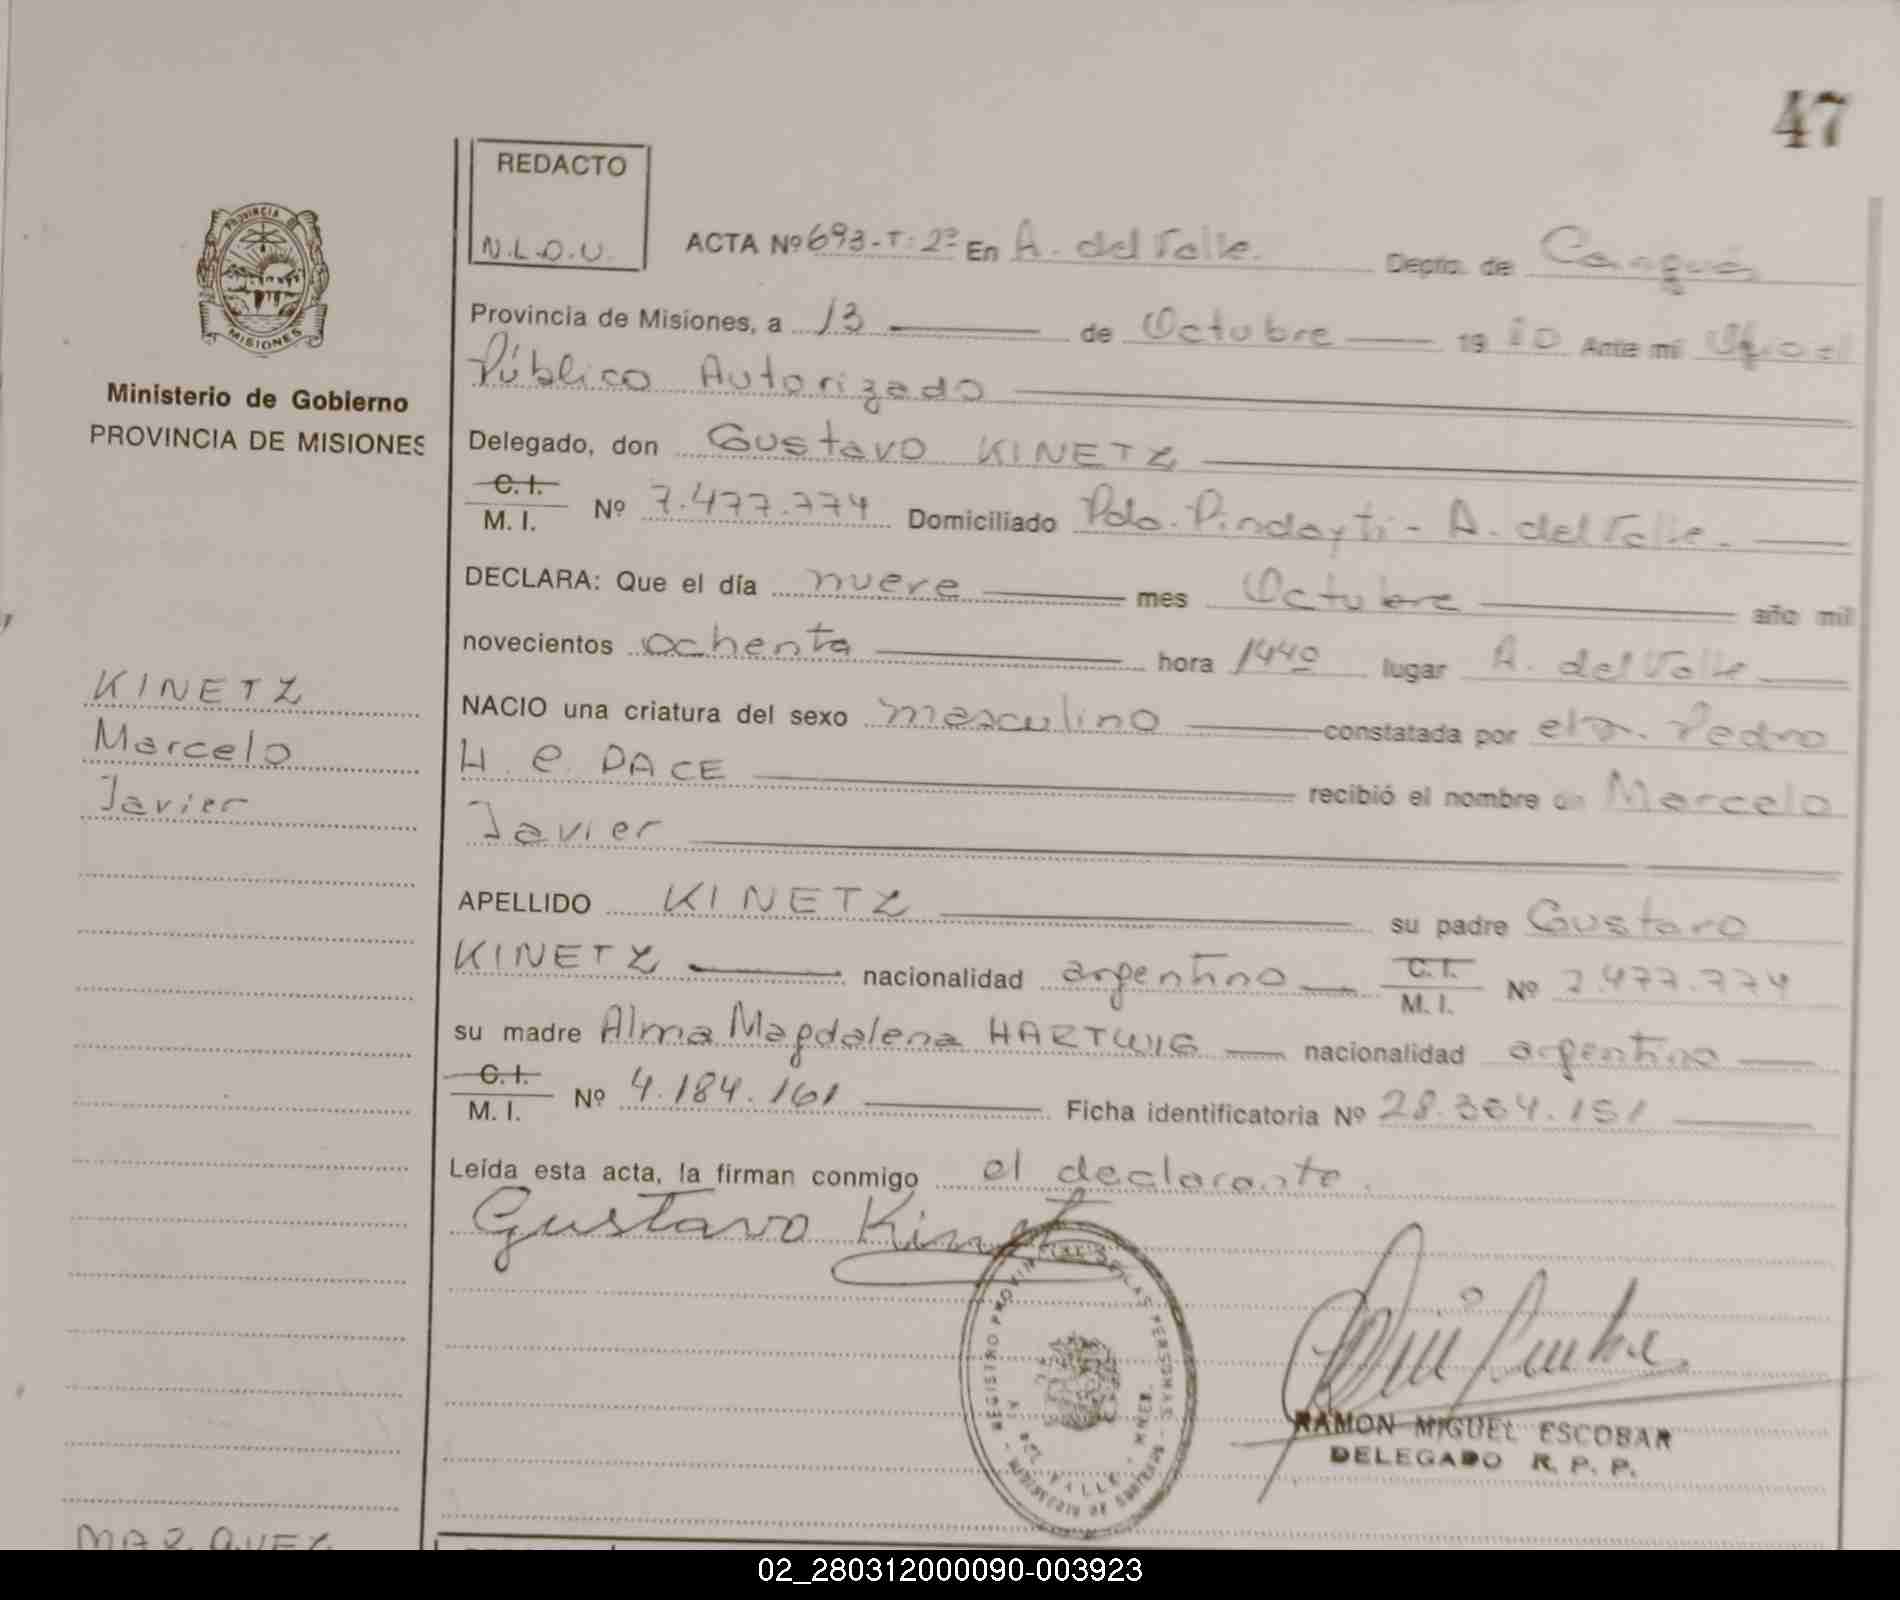 47
REDACTO
N.L.O.U.
ACTA Nº 693-T: 2º En A. del Valle. Depto. de Cainguás
Provincia de Misiones, a 13 de Octubre 19 80 Ante mi Oficial
Público Autorizado
Delegado, don Gustavo KINETZ
C. I.
M. I. Nº 7.477.774 Domiciliado Pdo. Pindayti - A. del Valle.
DECLARA: Que el día nueve mes Octubre año mil
novecientos ochenta hora 1440 lugar A. del Valle
NACIO una criatura del sexo masculino constatada por el Dr. Pedro
H. e. PACE recibió el nombre de Marcelo
Javier
APELLIDO KINETZ su padre Gustavo
KINETZ nacionalidad argentino C. I.
M. I. Nº 7.477.774
su madre Alma Magdalena HARTWIG nacionalidad argentina
C. I.
M. I. Nº 4.184.161 Ficha identificatoria Nº 28.364.151
Leída esta acta, la firman conmigo el declarante.
Gustavo Kinetz
REGISTRO PROVINCIAL DE LAS PERSONAS
DEL VALLE
RAMON MIGUEL ESCOBAR
DELEGADO R. P. P.
PROVINCIA DE
MISIONES
Ministerio de Gobierno
PROVINCIA DE MISIONES
KINETZ
Marcelo
Javier
MARQUEZ
02_280312000090-003923